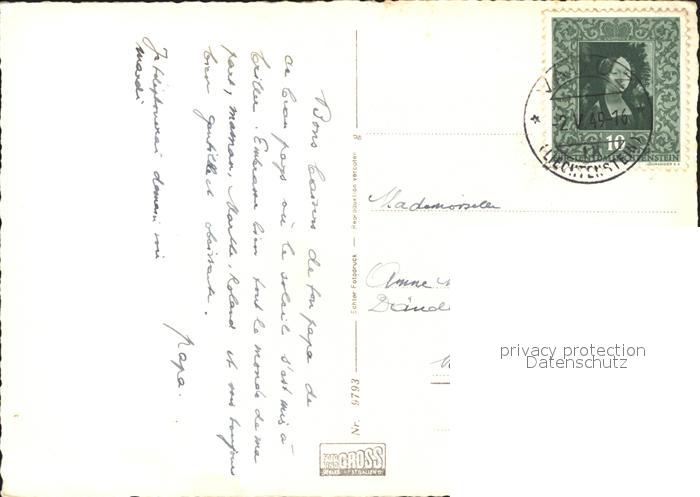 Bons baisers de ton papa de
ce beau pays où le soleil s'est mis à
briller. Embrasse bien tout le monde de ma
part, maman, Marthe, Roland et sois toujours
bien gentille et obéissante.
Papa.
Je téléphonerai demain soir
mardi
Mademoiselle
Anne
Nr. 9793
Echter Fotodruck
Reproduktion verboten
GROSS
ST. GALLEN
10
FÜRSTENTUM LIECHTENSTEIN
2.V.49-16
(LIECHTENSTEIN)
privacy protection
Datenschutz